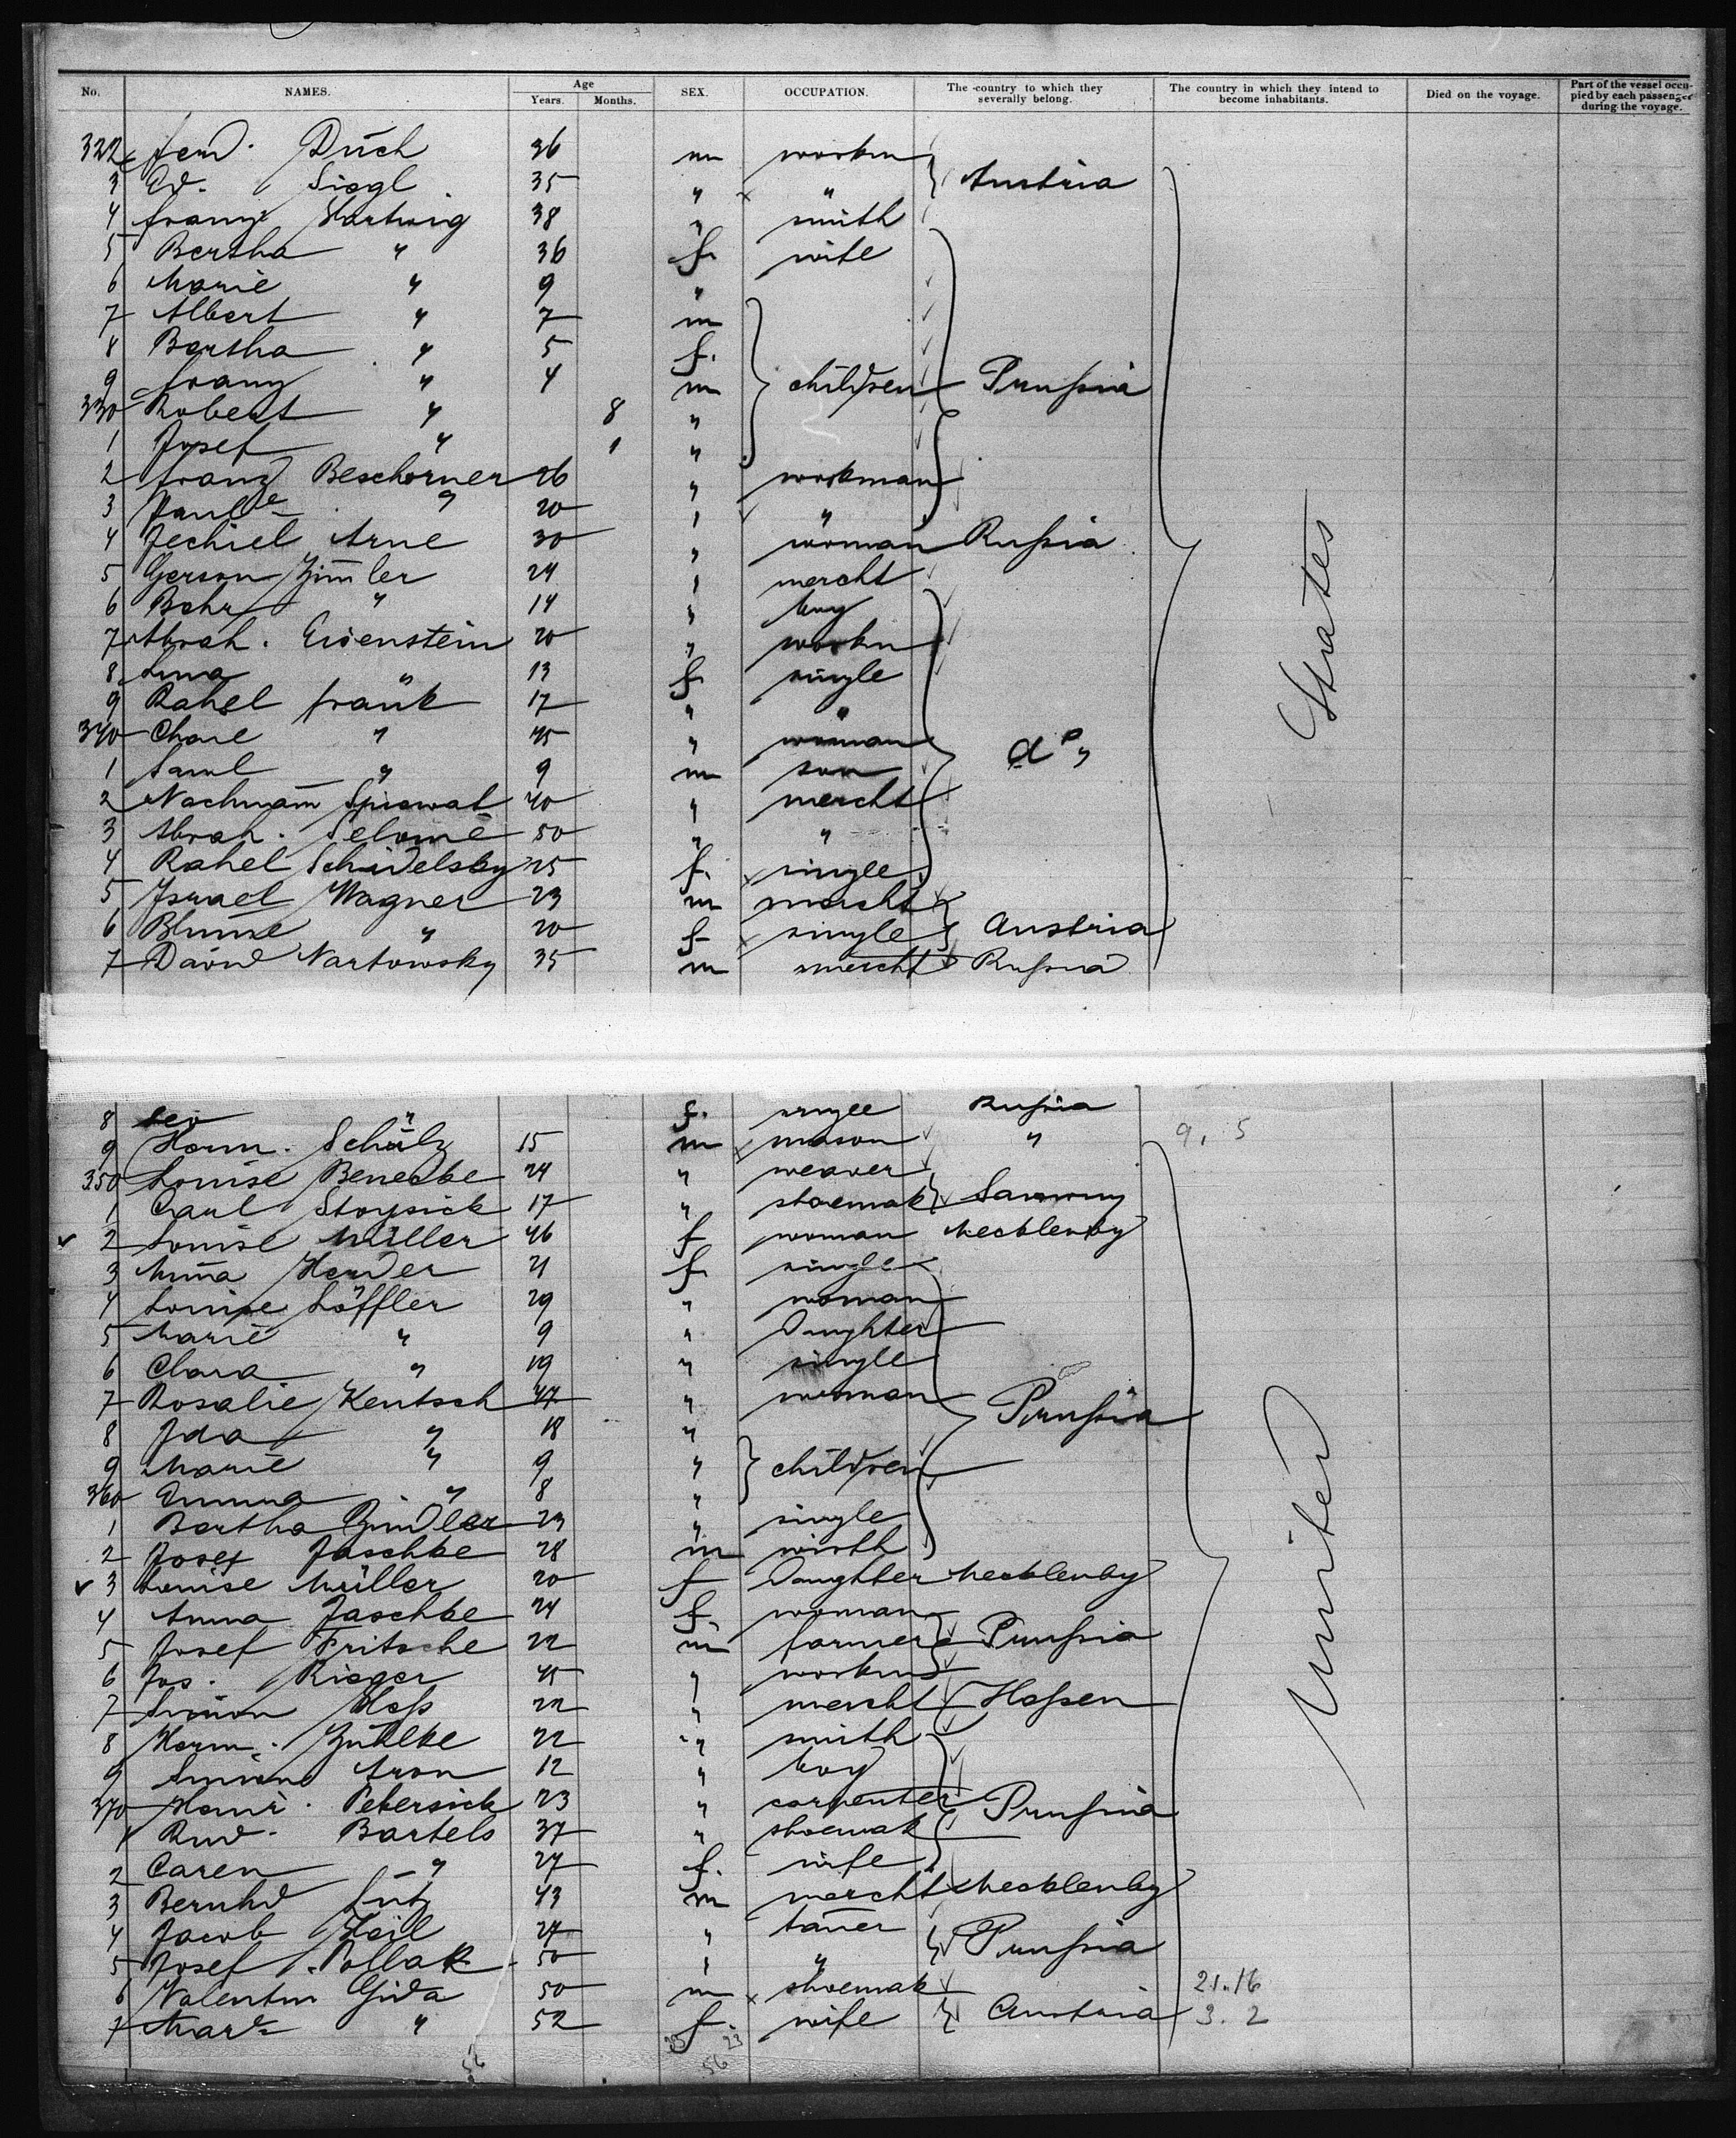 No. NAMES. Age Years. Months. SEX. OCCUPATION. The country to which they severally belong. The country in which they intend to become inhabitants. Died on the voyage. Part of the vessel occupied by each passenger during the voyage.
322 Ferd. Duch 36 m workm
3 Ed. Siegl 35 " " Austria
4 Franz Hartwig 38 " smith
5 Bertha " 36 f. wife
6 Marie " 9 "
7 Albert " 7 m
8 Bertha " 5 f.
9 Franz " 4 m children Prussia
330 Robert " 8 "
1 Josef " 1 "
2 Franz Beschorner 26 " workman
3 " 20 " "
4 Jechiel Arne 30 " woman Russia
5 Gerson 24 " mercht
6 Behr " 14 " boy
7 Abrah. Eisenstein 20 " workm
8 " 13 f. single
9 Rahel Frank 17 " "
340 " 45 " woman do "
1 " 9 m son
2 Nachmann 40 " mercht
3 Abrah. 50 " "
4 Rahel 25 f. single
5 Israel Wagner 23 m mercht
6 Blume " 20 f single Austria
7 David Nartowsky 35 m mercht Russia
States
8 " f. single Russia
9 Herm. Schülz 15 m mason " 9. 5
350 Louise Benecke 24 " weaver
1 17 " shoemak
2 Louise Müller 46 f woman Mecklenbg
3 21 f. single
4 Louise Löffler 29 " woman
5 Marie " 9 " Daughter
6 Clara " 19 " single
7 Rosalie Kentsch 47 " woman Prussia
8 Ida " 18 "
9 Marie " 9 " children
360 Emma " 8 "
1 Bertha 23 " single
2 Josef Jaschke 28 m
3 Louise Müller 20 f Daughter Mecklenbg
4 Anna Jaschke 24 f. woman
5 Josef Fritsche 22 m farmer Prussia
6 Jos. Rieger 45 " workm
7 Simon Hess 22 " mercht Hessen
8 Herm. Zühlke 22 " smith
9 Simon Aron 12 " boy
370 Heinr. Petersick 23 " carpenter Prussia
1 Rud. Bartels 37 " shoemak
2 Caren " 27 f. wife
3 Bernhd 43 m mercht Mecklenbg
4 Jacob Heil 27 " taner Prussia
5 Josef Pollak 50 " "
6 Valentin Gida 50 m shoemak 21.16
7 " 52 f. wife Austria 3. 2
United
56 33 23
56